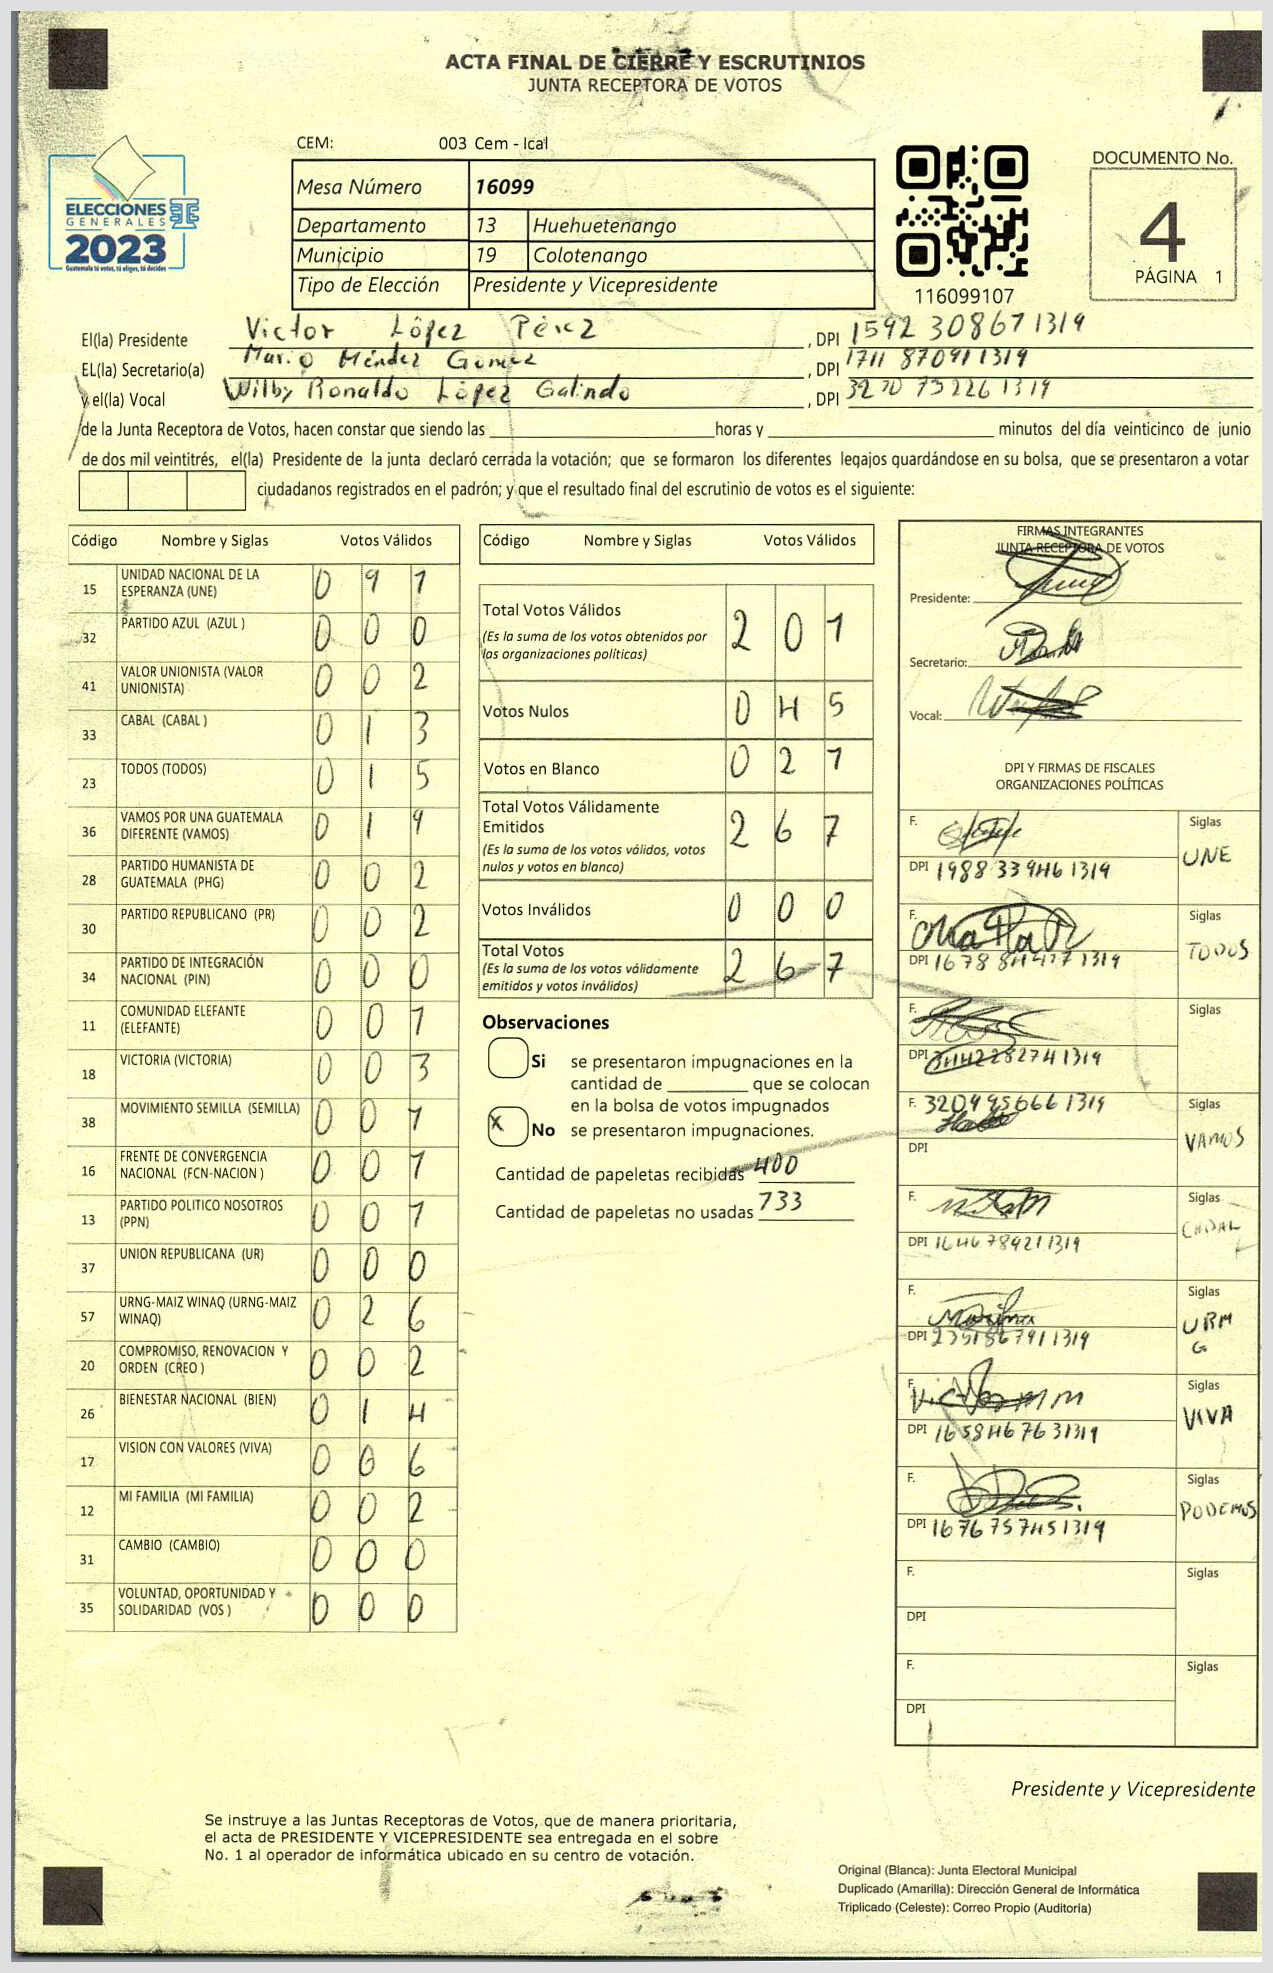 ACTA FINAL DE CIERRE Y ESCRUTINIOS
JUNTA RECEPTORA DE VOTOS
CEM: 003 Cem - Ical
ELECCIONES
GENERALES
2023
Guatemala tú votas, tú eliges, tú decides
Mesa Número 16099
Departamento 13 Huehuetenango
Municipio 19 Colotenango
Tipo de Elección Presidente y Vicepresidente
116099107
DOCUMENTO No.
4
PÁGINA 1
El(la) Presidente Victor López Pérez , DPI 1592 30867 1319
EL(la) Secretario(a) Mario Méndez Gomez , DPI 1711 87091 1319
y el(la) Vocal Wilby Ronaldo López Galindo , DPI 3230 75226 1319
de la Junta Receptora de Votos, hacen constar que siendo las horas y minutos del día veinticinco de junio
de dos mil veintitrés, el(la) Presidente de la junta declaró cerrada la votación; que se formaron los diferentes legajos quardándose en su bolsa, que se presentaron a votar
ciudadanos registrados en el padrón; y que el resultado final del escrutinio de votos es el siguiente:
Código Nombre y Siglas Votos Válidos
15 UNIDAD NACIONAL DE LA ESPERANZA (UNE) 0 9 1
32 PARTIDO AZUL (AZUL ) 0 0 0
41 VALOR UNIONISTA (VALOR UNIONISTA) 0 0 2
33 CABAL (CABAL ) 0 1 3
23 TODOS (TODOS) 0 1 5
36 VAMOS POR UNA GUATEMALA DIFERENTE (VAMOS) 0 1 9
28 PARTIDO HUMANISTA DE GUATEMALA (PHG) 0 0 2
30 PARTIDO REPUBLICANO (PR) 0 0 2
34 PARTIDO DE INTEGRACIÓN NACIONAL (PIN) 0 0 0
11 COMUNIDAD ELEFANTE (ELEFANTE) 0 0 1
18 VICTORIA (VICTORIA) 0 0 3
38 MOVIMIENTO SEMILLA (SEMILLA) 0 0 1
16 FRENTE DE CONVERGENCIA NACIONAL (FCN-NACION ) 0 0 1
13 PARTIDO POLITICO NOSOTROS (PPN) 0 0 1
37 UNION REPUBLICANA (UR) 0 0 0
57 URNG-MAIZ WINAQ (URNG-MAIZ WINAQ) 0 2 6
20 COMPROMISO, RENOVACION Y ORDEN (CREO ) 0 0 2
26 BIENESTAR NACIONAL (BIEN) 0 1 4
17 VISION CON VALORES (VIVA) 0 0 6
12 MI FAMILIA (MI FAMILIA) 0 0 2
31 CAMBIO (CAMBIO) 0 0 0
35 VOLUNTAD, OPORTUNIDAD Y SOLIDARIDAD (VOS ) 0 0 0
Código Nombre y Siglas Votos Válidos
Total Votos Válidos 2 0 1
(Es la suma de los votos obtenidos por
las organizaciones políticas)
Votos Nulos 0 4 5
Votos en Blanco 0 2 1
Total Votos Válidamente
Emitidos 2 6 7
(Es la suma de los votos válidos, votos
nulos y votos en blanco)
Votos Inválidos 0 0 0
Total Votos 2 6 7
(Es la suma de los votos válidamente
emitidos y votos inválidos)
Observaciones
Si se presentaron impugnaciones en la
cantidad de que se colocan
en la bolsa de votos impugnados
X No se presentaron impugnaciones.
Cantidad de papeletas recibidas 400
Cantidad de papeletas no usadas 133
FIRMAS INTEGRANTES
JUNTA RECEPTORA DE VOTOS
Presidente:
Secretario:
Vocal:
DPI Y FIRMAS DE FISCALES
ORGANIZACIONES POLÍTICAS
F. Siglas
DPI 1988 33946 1319 UNE
F. Siglas
DPI 1678 84427 1319 TODOS
F. Siglas
DPI 3442282741319
F. 3209 95666 1319 Siglas
DPI VAMOS
F. Siglas
DPI 1646 78921 1319 CABAL
F. Siglas
DPI 2351867911319 URNG
F. Siglas
DPI 1658467631319 VIVA
F. Siglas
DPI 1676 75745 1319 PODEMOS
F. Siglas
DPI
F. Siglas
DPI
Presidente y Vicepresidente
Se instruye a las Juntas Receptoras de Votos, que de manera prioritaria,
el acta de PRESIDENTE Y VICEPRESIDENTE sea entregada en el sobre
No. 1 al operador de informática ubicado en su centro de votación.
Original (Blanca): Junta Electoral Municipal
Duplicado (Amarilla): Dirección General de Informática
Triplicado (Celeste): Correo Propio (Auditoría)